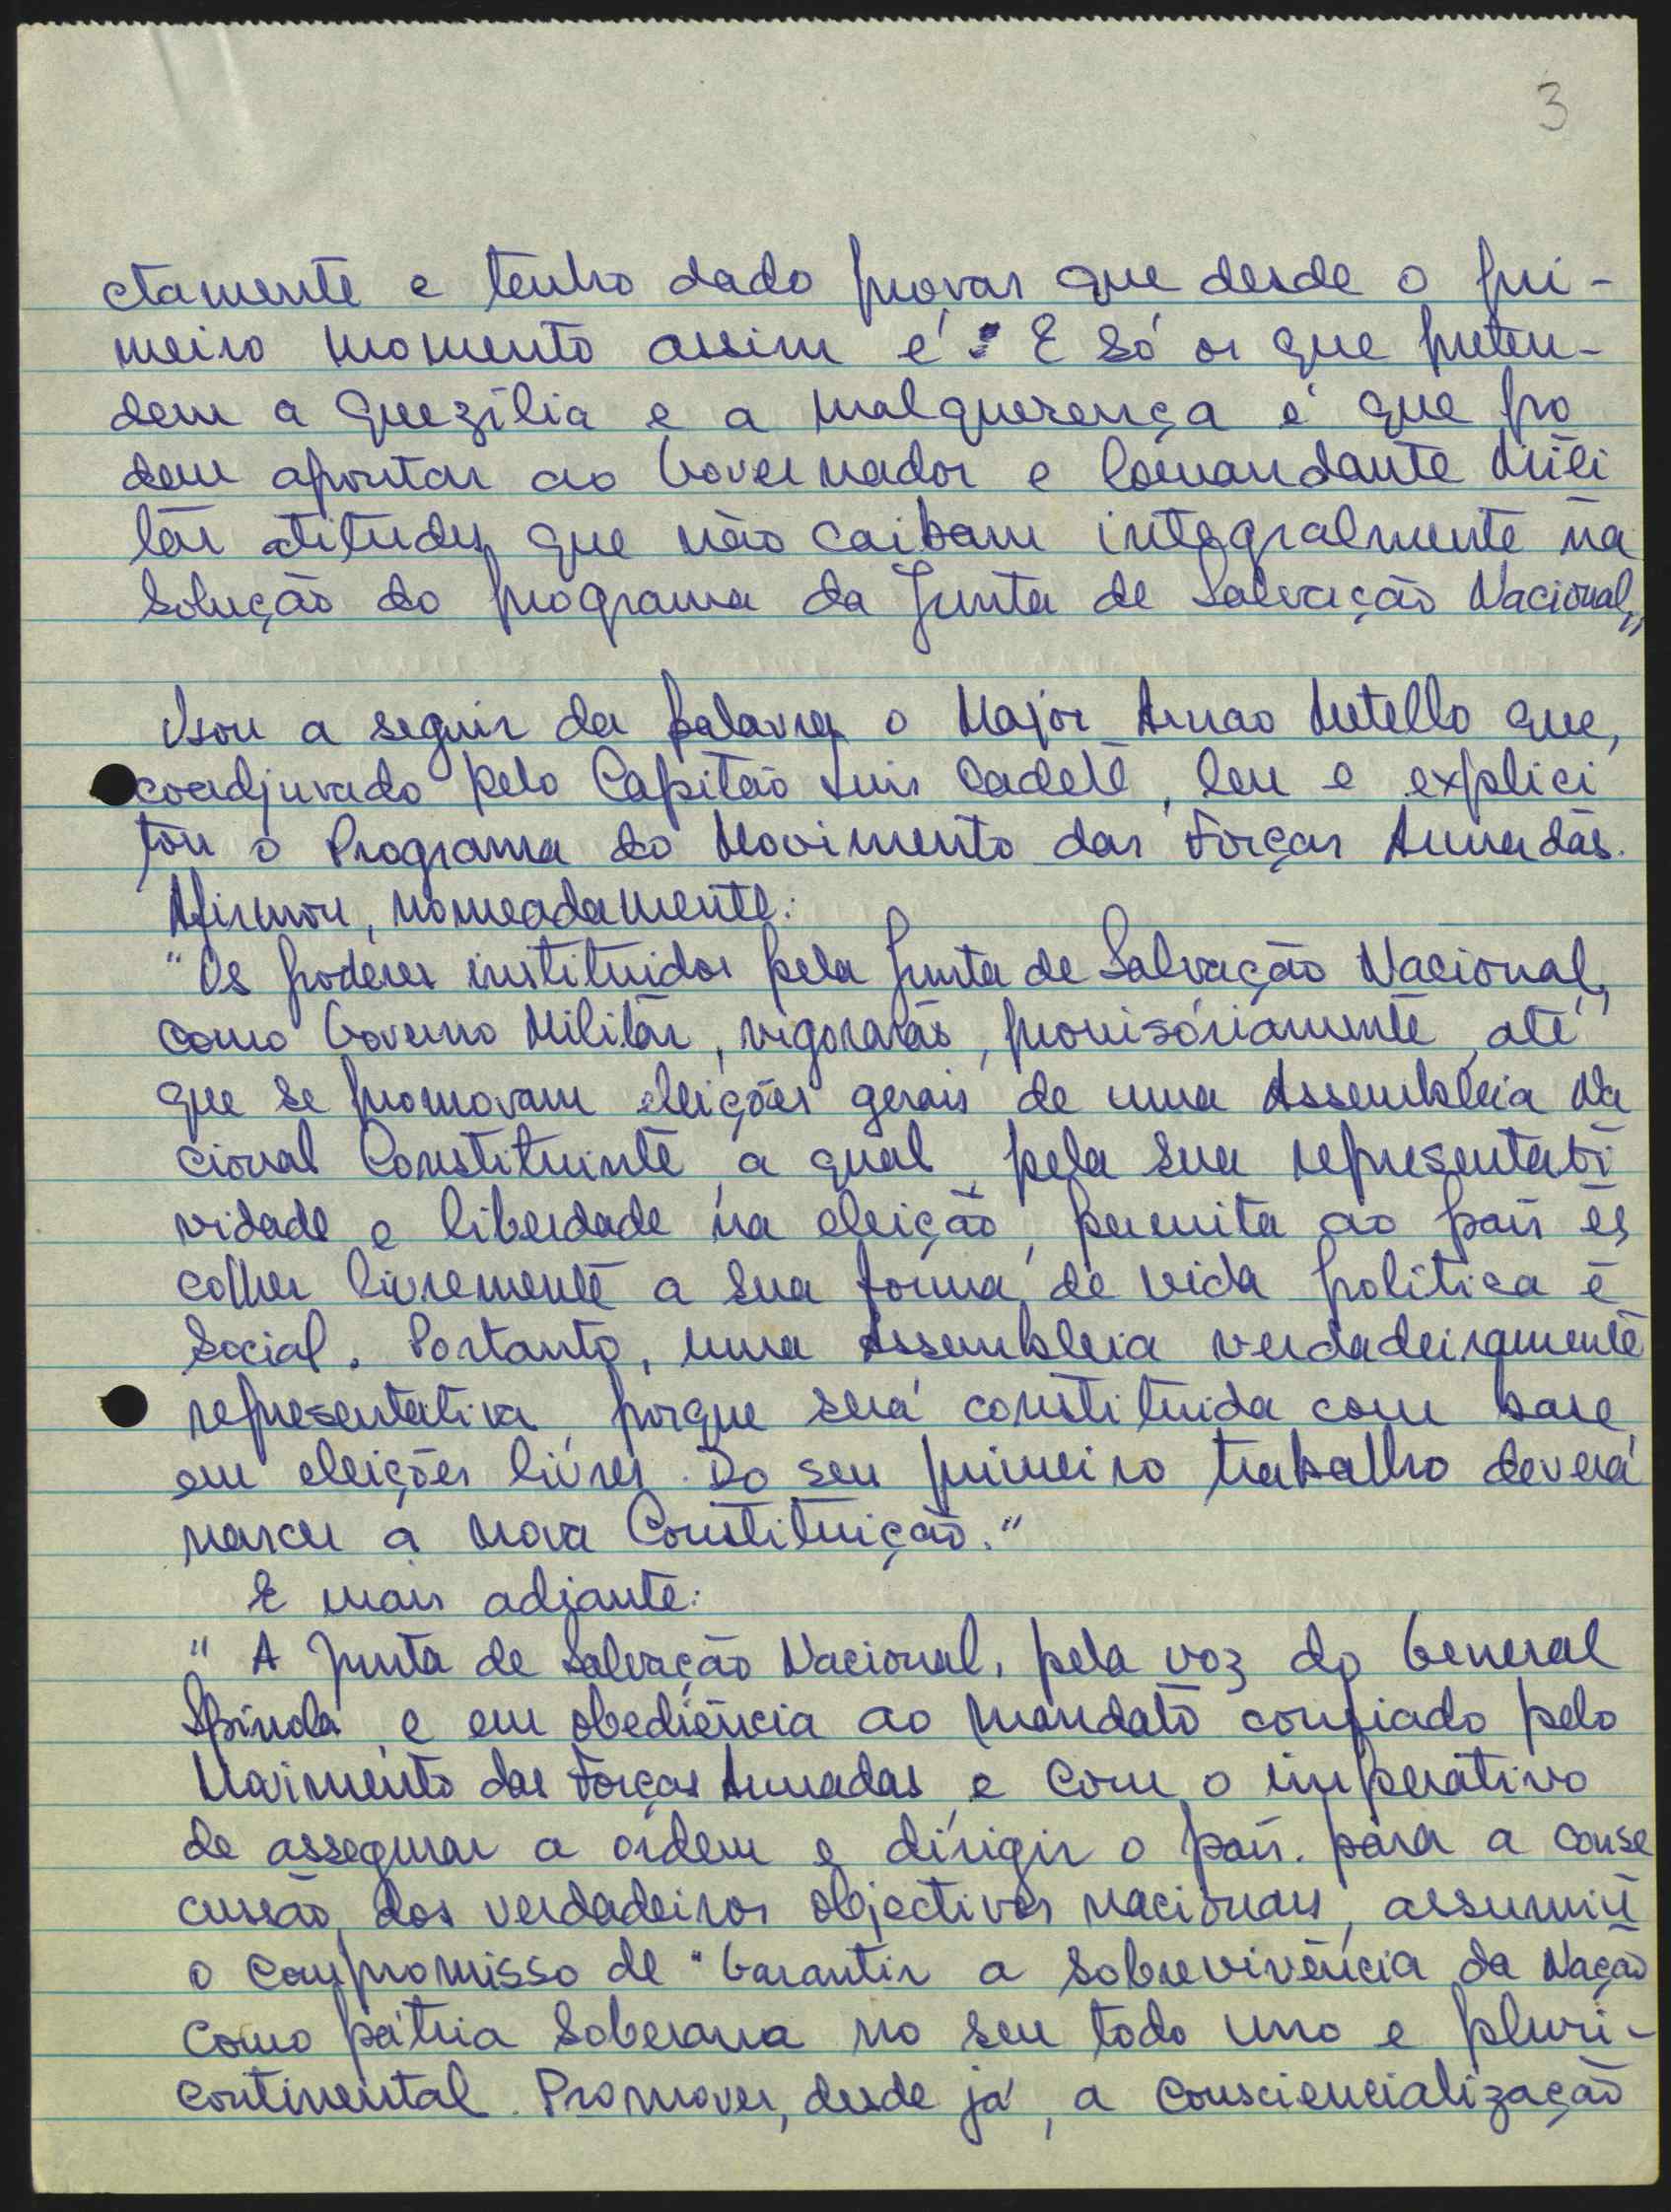 3
ctamente e tenho dado provas que desde o pri-
meiro momento assim é. E só os que preten-
dem a quezília e a malquerença é que po
dem apontar ao Governador e Comandante Mili
tar atitudes que não caibam integralmente na
Solução do programa da Junta de Salvação Nacional,,
Usou a seguir da palavra o Major Arnao Metello que,
coadjuvado pelo Capitão Luis Cadete, leu e explici
tou o Programa do Movimento das Forças Armadas.
Afirmou, nomeadamente:
"Os poderes instituidos pela Junta de Salvação Nacional,
como Governo Militar, vigorarão, provisóriamente, até
que se promovam eleições gerais de uma Assembleia Na
cional Constituinte, a qual, pela sua representati
vidade e liberdade na eleição, permita ao país es
colher livremente a sua forma de vida política e
Social. Portanto, uma Assembleia verdadeiramente
representativa, porque será constituida com base
em eleições livres. Do seu primeiro trabalho deverá
nascer a nova Constituição."
E mais adiante:
" A Junta de Salvação Nacional, pela voz do General
Spínola, e em obediência ao mandato confiado pelo
Movimento das Forças Armadas, e com o imperativo
de assegurar a ordem e dirigir o país. para a conse
cussão dos verdadeiros objectivos nacionais, assumiu
o compromisso de "Garantir a sobrevivência da Nação
como pátria Soberana no seu todo uno e pluri-
continental. Promover, desde já, a consciencialização